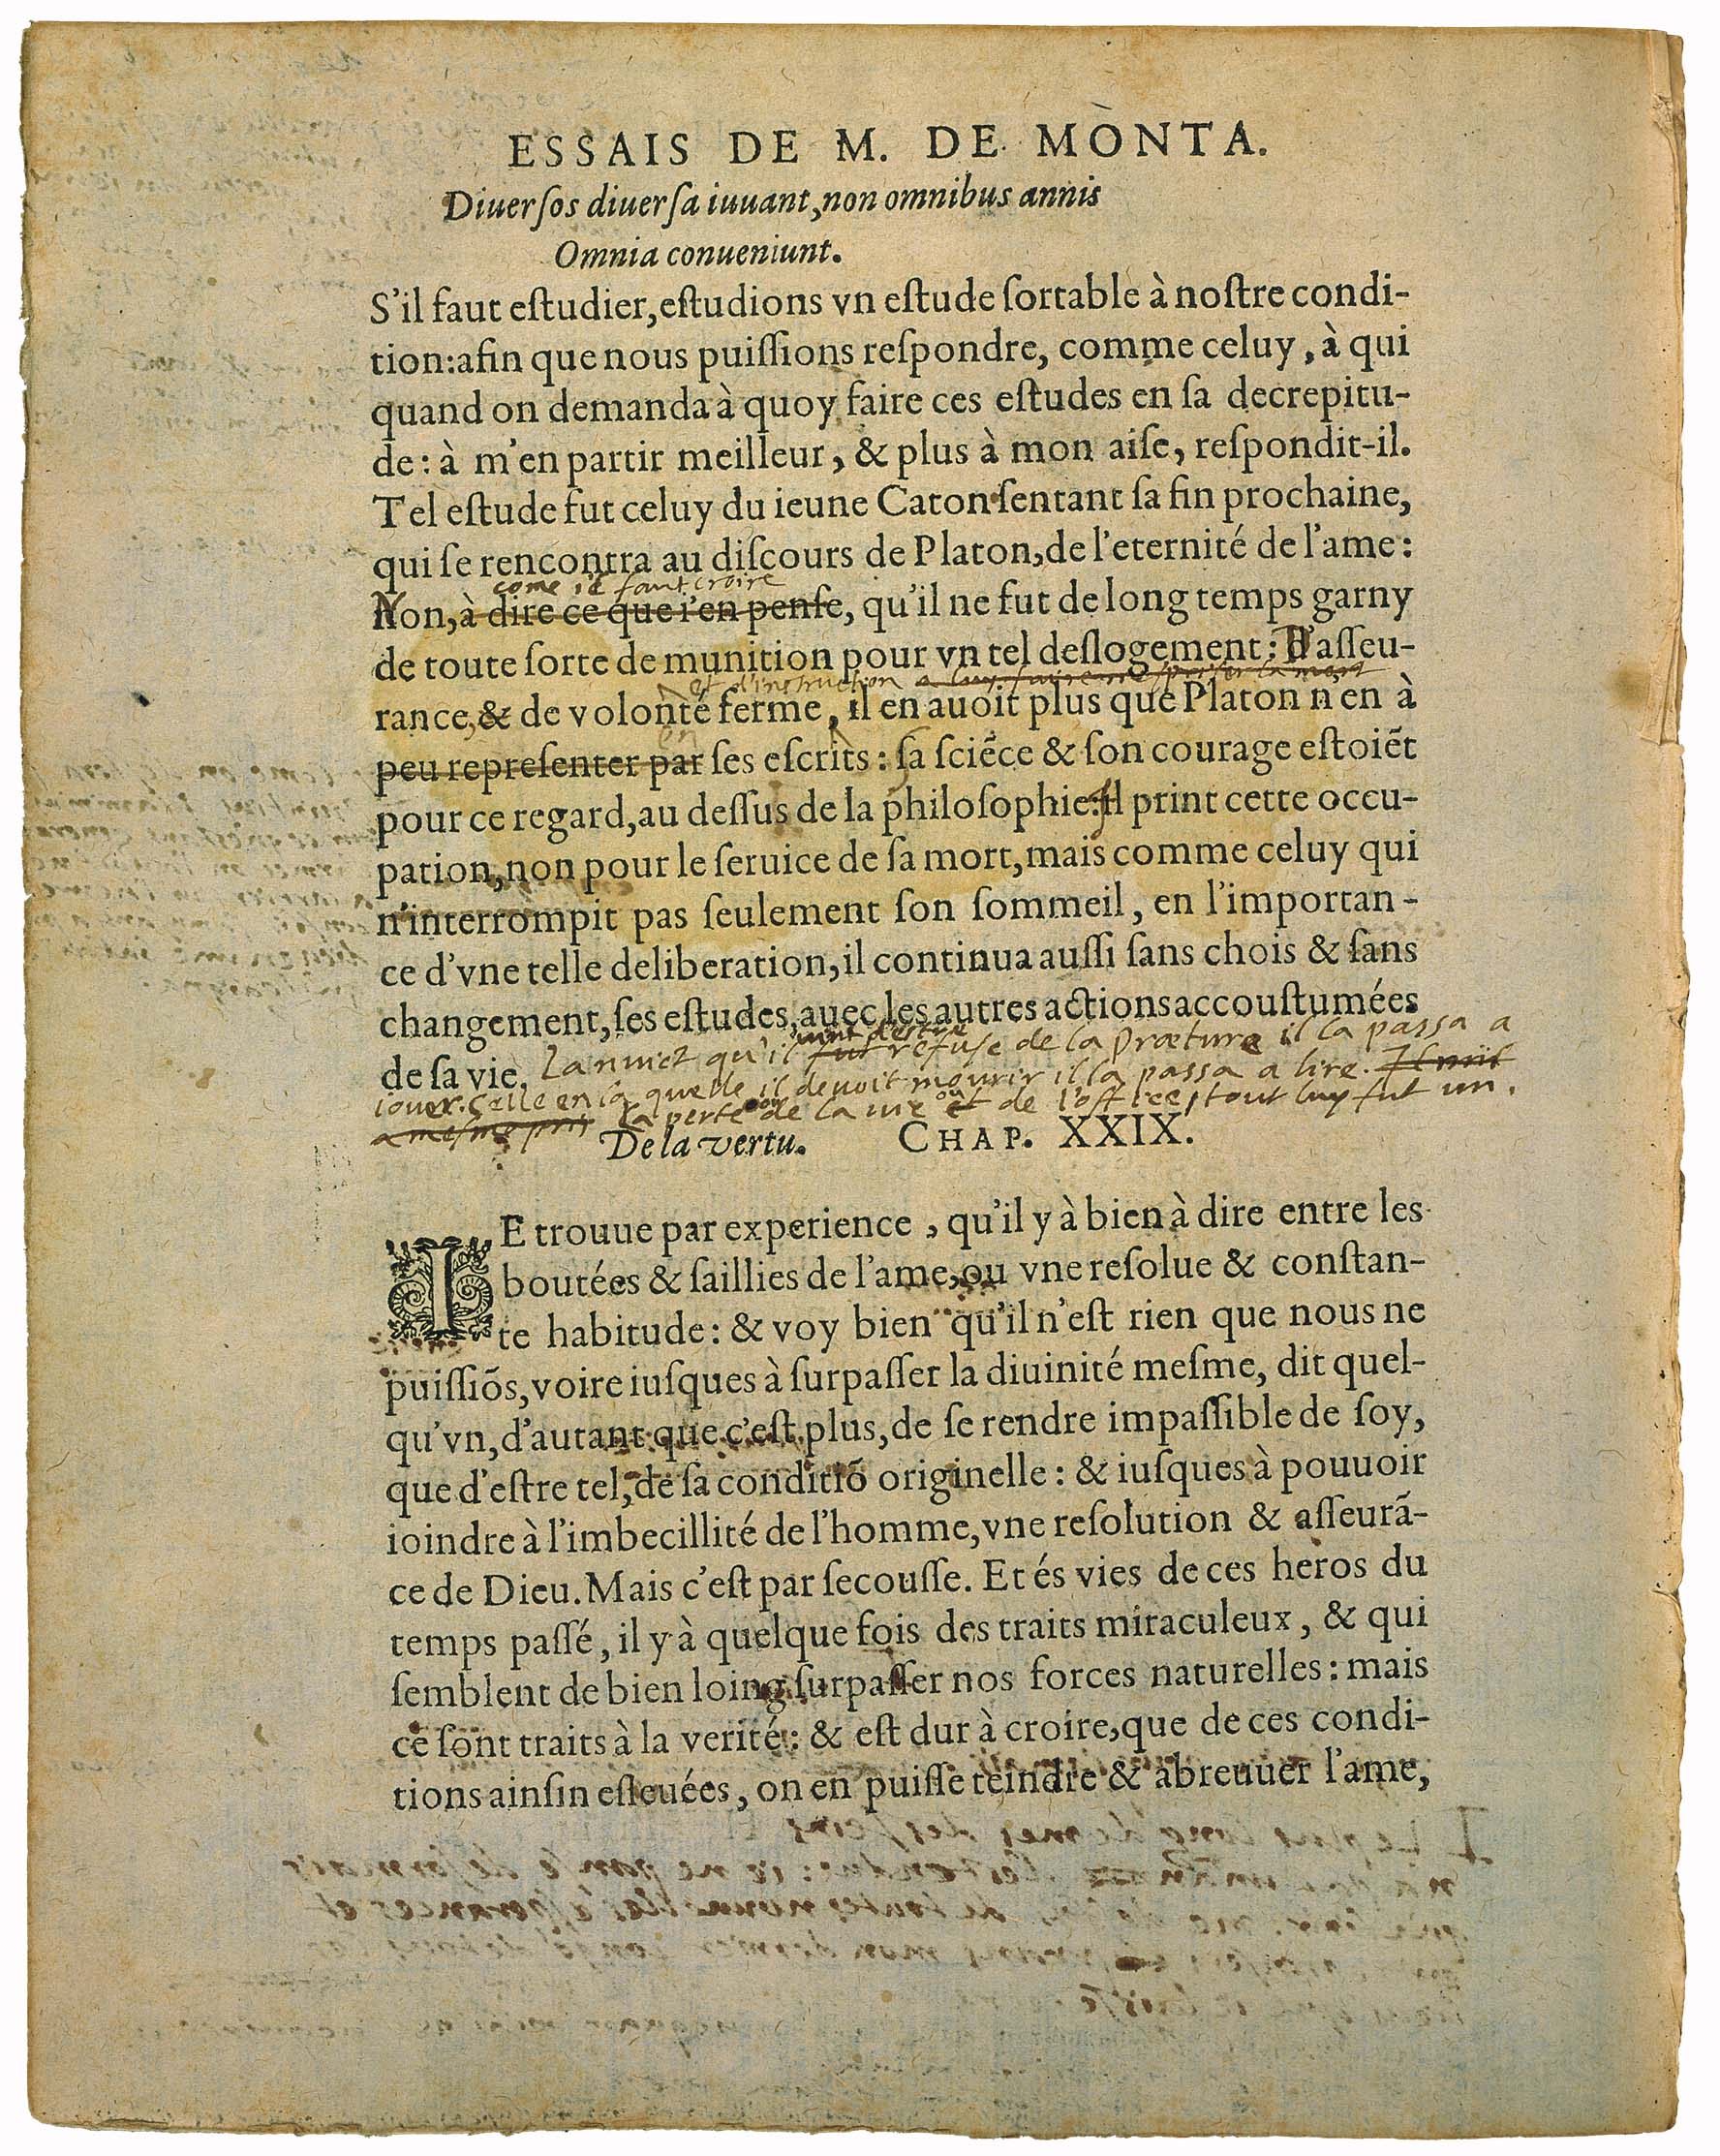 ESSAIS DE M. DE MONTA.
Diuerſos diuerſa iuuant, non omnibus annis
Omnia conueniunt.
S'il faut eſtudier, eſtudions vn eſtude ſortable à noſtre condi-
tion: afin que nous puiſſions reſpondre, comme celuy, à qui
quand on demanda à quoy faire ces eſtudes en ſa decrepitu-
de: à m'en partir meilleur, & plus à mon aiſe, reſpondit-il.
Tel eſtude fut celuy du ieune Caton ſentant ſa fin prochaine,
qui ſe rencontra au diſcours de Platon, de l'eternité de l'ame:
come il faut croire
Non, à dire ce que i'en penſe, qu'il ne fut de long temps garny
de toute ſorte de munition pour vn tel deſlogement: D'aſſeu-
et d'instruction a luy faire mespriser la mort
rance, & de volonté ferme, il en auoit plus que Platon n'en à
en
peu repreſenter par ſes eſcrits: ſa ſciẽce & ſon courage eſtoiẽt
pour ce regard, au deſſus de la philoſophie: Il print cette occu-
pation, non pour le ſeruice de ſa mort, mais comme celuy qui
n'interrompit pas ſeulement ſon ſommeil, en l'importan-
ce d'vne telle deliberation, il continua auſſi ſans chois & ſans
changement, ſes eſtudes, auec les autres actions accouſtumées
vint d'estre
de ſa vie. La nuict qu'il fut refuse de la Præture il la passa a
iouer. Celle en la quelle il devoit mourir il la passa a lire.
a mesme pris La perte ou de la vie ou et de l'office, tout luy fut un.
De la vertu. CHAP. XXIX.
IE trouue par experience, qu'il y à bien à dire entre les
boutées & ſaillies de l'ame, ou vne reſolue & conſtan-
te habitude: & voy bien qu'il n'eſt rien que nous ne
puiſſiõs, voire iuſques à ſurpaſſer la diuinité meſme, dit quel-
qu'vn, d'autant que c'eſt plus, de ſe rendre impaſſible de ſoy,
que d'eſtre tel, de ſa conditiõ originelle: & iuſques à pouuoir
ioindre à l'imbecillité de l'homme, vne reſolution & aſſeurã-
ce de Dieu. Mais c'eſt par ſecouſſe. Et és vies de ces heros du
temps paſſé, il y à quelque fois des traits miraculeux, & qui
ſemblent de bien loing ſurpaſſer nos forces naturelles: mais
ce ſont traits à la verité: & eſt dur à croire, que de ces condi-
tions ainſin eſleuées, on en puiſſe teindre & abreuuer l'ame,